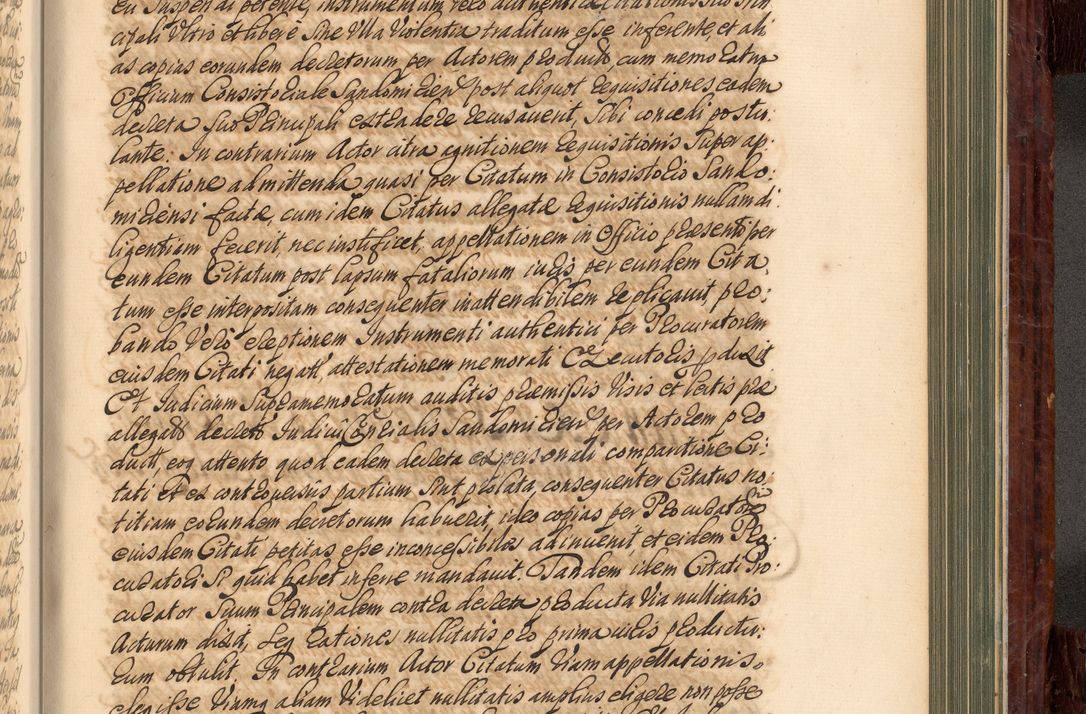 cipali Ultro et libere sine Ulla Violentia traditum esse inferente, et ali
as copias eorundem decretorum per Actorem producto, cum memoratum
Officium Consistoriale Sandomirien post aliquot requisitiones, eadem
decreta suo Principali extradere recusaverit, sibi concedi postu:
lante. In contrarium Actor citra agnitionem requisitionis super ap:
pellatione admittenda quasi per Citatum in Consistorio Sando:
miriensi factae, cum idem Citatus allegatae requisitionis nullam di:
ligentiam fecerit, nec instificet, appellationem in Officio praesenti per
eundem Citatum post lapsum fataliorum iuris per eundem Cita,
tum esse interpositam consequenter inattendibilem replicavit, pro:
bando Vero exceptionem Instrumenti authentici per Procuratorem
eiusdem Citati negati, attestationem memorati Executoris produxit
Et Iudicium Supramemoratum auditis praemissis Visis et lectis prae
allegatis decretis Iudicii Officialis Sandomirien per Actorem pro
ductis, eoq attento quod eadem decreta ex personali comparitione Ci:
tati et ex controversiis partium sint prolata, consequenter Citatus no,
titiam eorundem decretorum habuerit, ideo copias per Procuratorem
eiusdem Citati petitas esse inconcessibiles adinvenit, et eidem Pro,
curatori si quid habet inferre mandavit. Tandem idem Citati Pro:
curator Suum Principalem contra decreta producta Via nullitatis
Acturum dixit, seq rationes nullitatis pro prima iuris producturum:
rum obtulit. In contrarium Actor Citatum Viam appellationis
elegisse Viamq aliam Videlicet nullitatis amplius eligere non posse